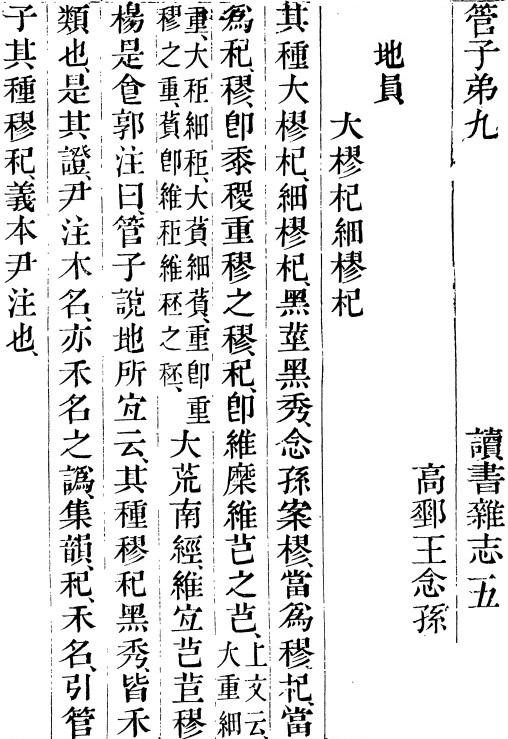 管子弟九 讀書雜志五
高郵王念孫
地員
大樛杞細樛杞
其種大樛杞、細樛杞、黑莖黑秀、念孫案樛、當爲穋、杞、當
爲、穋、卽黍稷重穋之穋、卽維穈維芑之芑、上文云、大重細
重、大秬細秬、大蕡細蕡、重卽重穋之重、蕡卽維秬維秠之秠、大荒南經、維宐芑苣穋
楊是食郭注曰、管子說地所宐云、其種穋黑秀、皆禾
類也、是其證、尹注木名、亦禾名之譌、集韻、禾名、引管
子其種穋、義本尹注也、